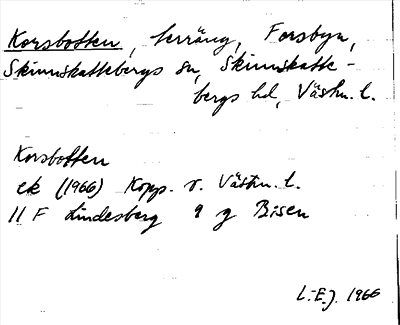 Korsbotten, terräng, Forsbyn,
Skinnskattebergs sn, Skinnskatte-
bergs hd, Västm. l.
Korsbotten
ek (1966) Kopp. o. Västm. l.
11 F Lindesberg 9 g Bisen
L.E.J. 1966